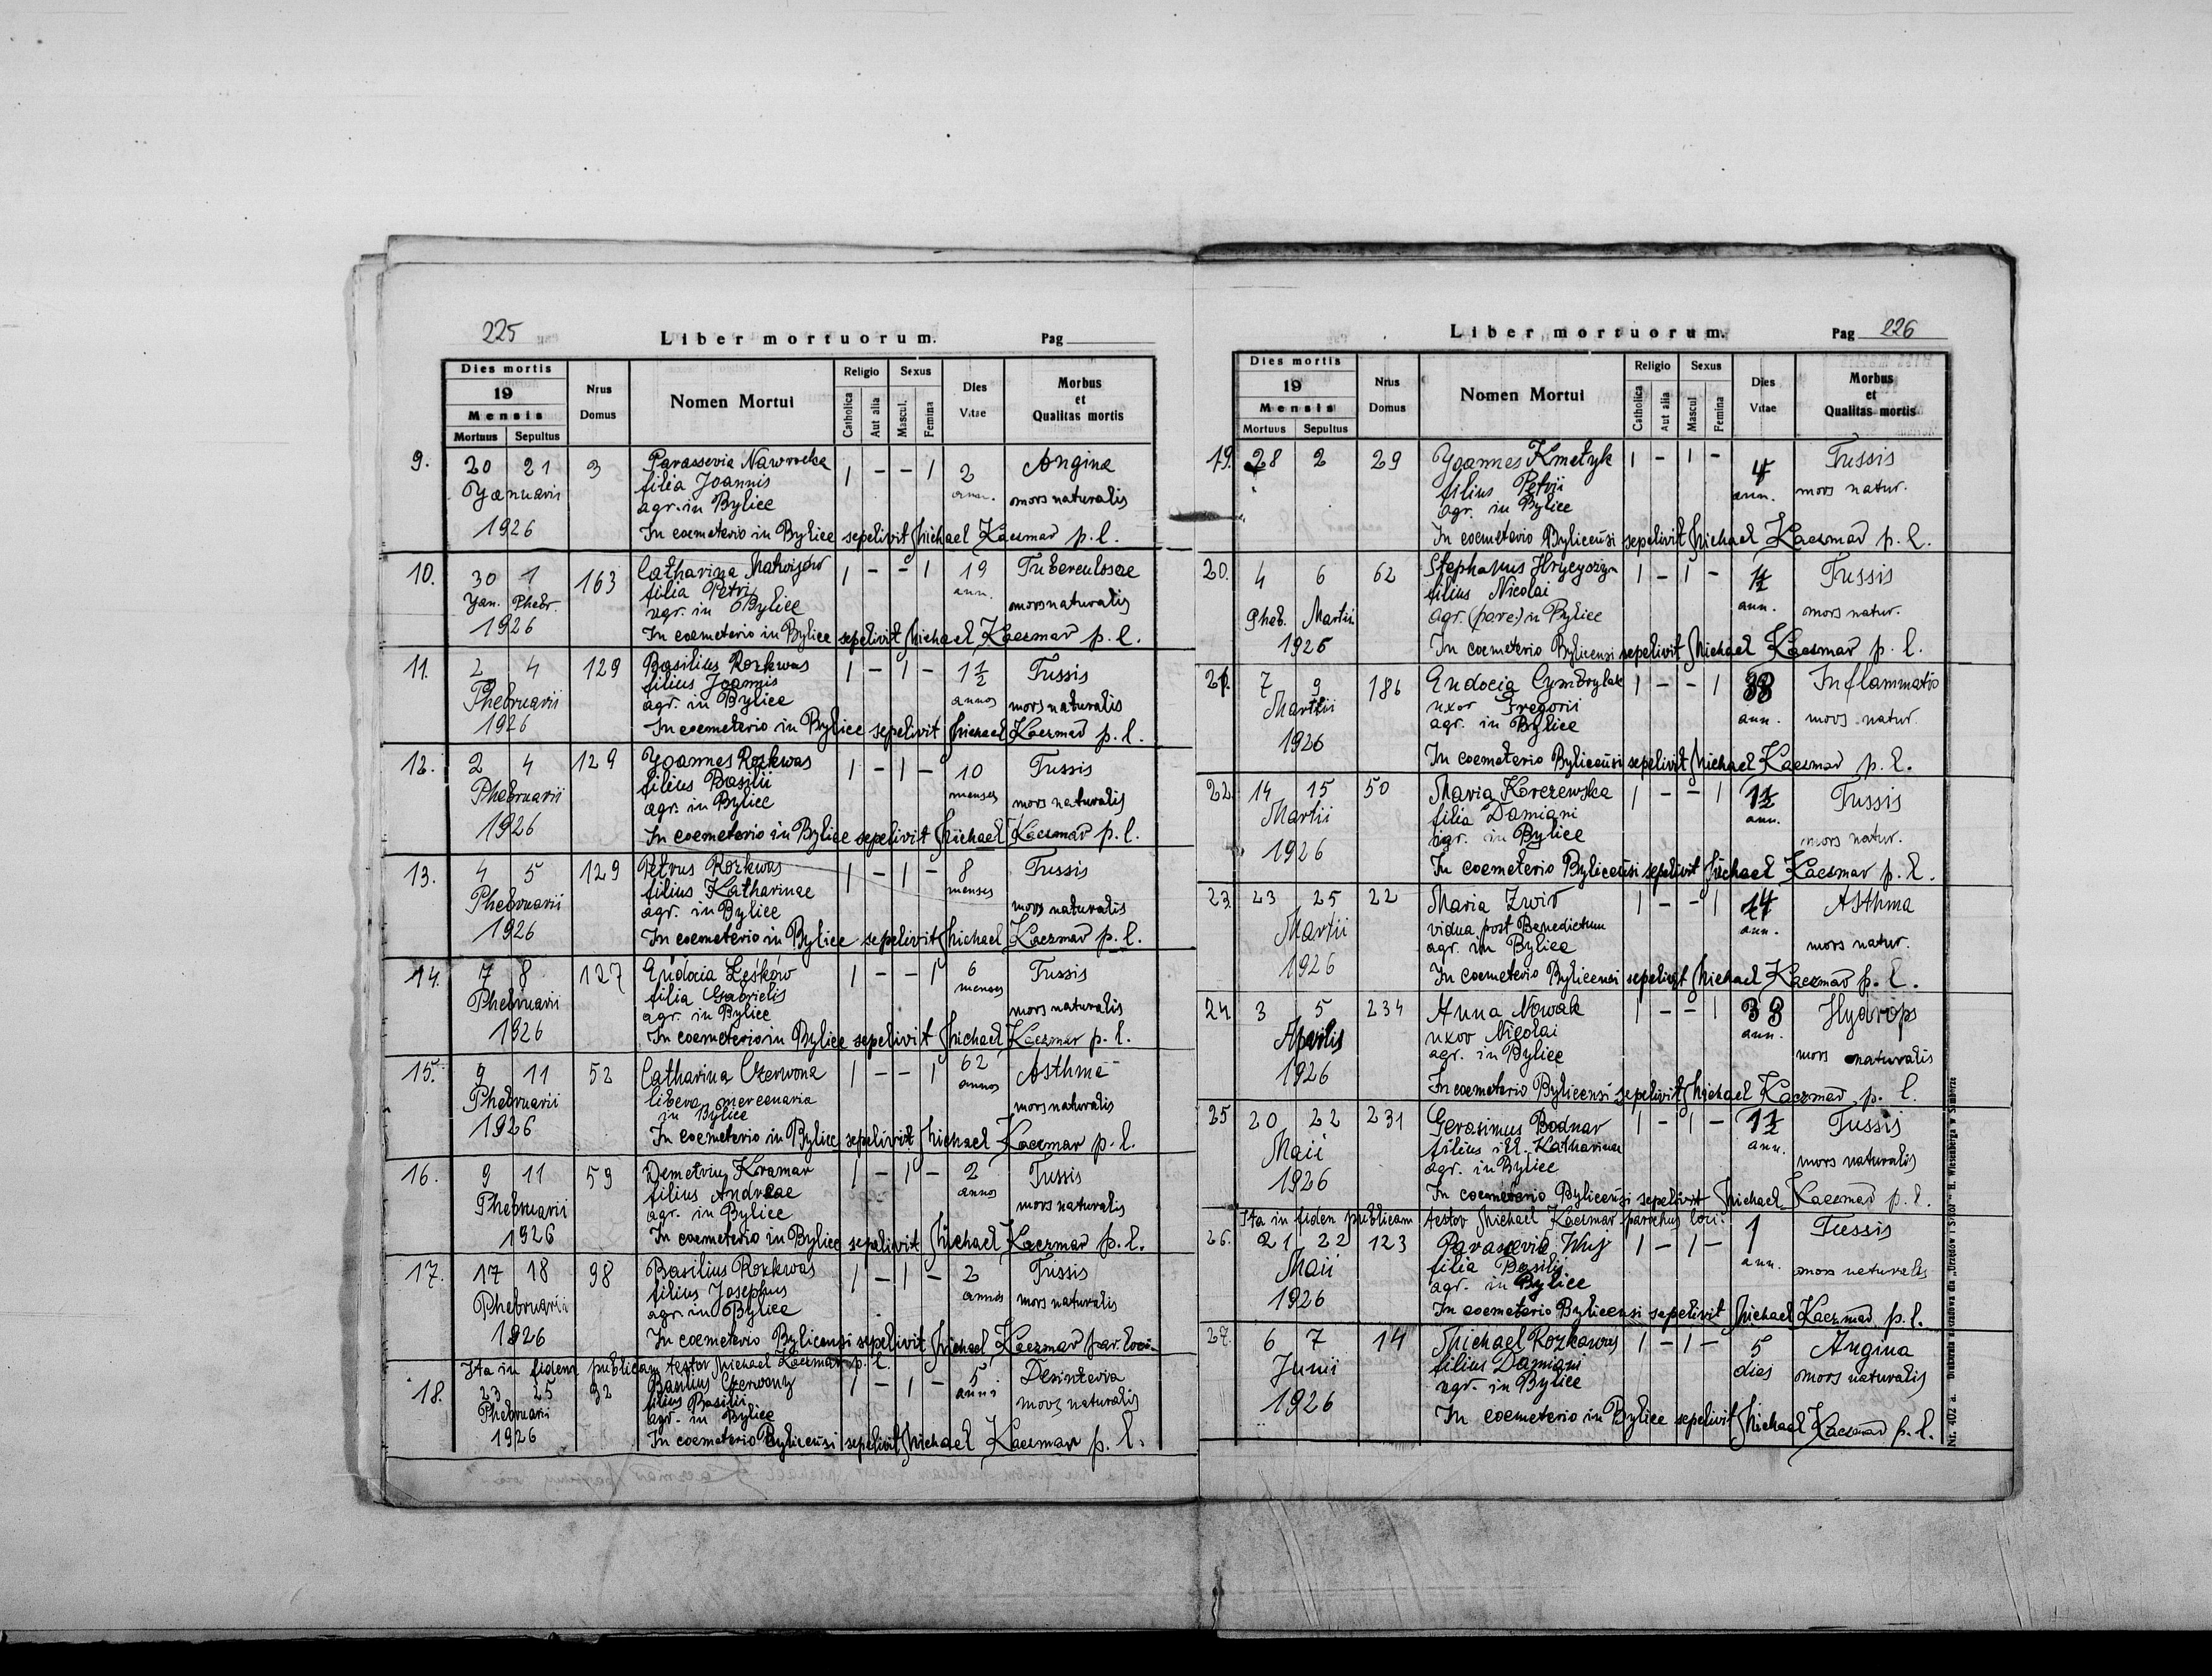 225
Liber mortuorum.
Pag
Dies mortis
19
Mensis
Mortuus Sepultus
Nrus Domus
Nomen Mortui
Religio
Catholica Aut alia
Sexus
Mascul. Femina
Dies Vitae
Morbus et Qualitas mortis
9. 20 21 3 Parassevia Nawrocka 1 - - 1 2 Angina
Yanuaris filia Joannis ann. mors naturalis
agr. in Bylice
1926 In coemeterio in Bylice sepelivit Michael Kaczmar p. l.
10. 30 1 163 Catharina Matwijów 1 - - 1 19 Tuberculosae
Yan. Phebr. filia Petri ann. mors naturalis
agr. in Bylice
1926 In coemeterio in Bylice sepelivit Michael Kaczmar p. l.
11. 2 4 129 Basilius Rozkwas 1 - 1 - 1½ Tussis
Phebruarii filius Joannis annos mors naturalis
agr. in Bylice
1926 In coemeterio in Bylice sepelivit Michael Kaczmar p. l.
12. 2 4 129 Yoannes Rozkwas 1 - 1 - 10 Tussis
Phebruarii filius Basilii menses mors naturalis
agr. in Bylice
1926 In coemeterio in Bylice sepelivit Michael Kaczmar p. l.
13. 4 5 129 Petrus Rozkwas 1 - 1 - 8 Tussis
Phebruarii filius Katharinae menses mors naturalis
agr. in Bylice
1926 In coemeterio in Bylice sepelivit Michael Kaczmar p. l.
14. 7 8 127 Eudocia Leśków 1 - - 1 6 Tussis
Phebruarii filia Gabrielis menses mors naturalis
agr. in Bylice
1926 In coemeterio in Bylice sepelivit Michael Kaczmar p. l.
15. 9 11 52 Catharina Czerwona 1 - - 1 62 Asthme
Phebruarii libera mercenaria annos mors naturalis
in Bylice
1926 In coemeterio in Bylice sepelivit Michael Kaczmar p. l.
16. 9 11 59 Demetrius Kramar 1 - 1 - 2 Tussis
Phebruarii filius Andreae annos mors naturalis
agr. in Bylice
1926 In coemeterio in Bylice sepelivit Michael Kaczmar p. l.
17. 17 18 98 Basilius Rozkwas 1 - 1 - 2 Tussis
Phebruarii filius Josephus annos mors naturalis
agr. in Bylice
1926 In coemeterio Bylicensi sepelivit Michael Kaczmar par. loci.
Ita in fidem publicam testor Michael Kaczmar p. l.
18. 23 25 92 Basilius Czerwony 1 - 1 - 5 Desinteria
Phebruarii filius Basilii anni mors naturalis
agr. in Bylice
1926 In coemeterio Bylicensi sepelivit Michael Kaczmar p. l.
Liber mortuorum.
Pag 226
Dies mortis
19
Mensis
Mortuus Sepultus
Nrus Domus
Nomen Mortui
Religio
Catholica Aut alia
Sexus
Mascul Femina
Dies Vitae
Morbus et Qualitas mortis
19. 28 2 29 Yoannes Kmetyk 1 - 1 - 4 Tussis
filius Petrii ann. mors natur.
agr. in Bylice
In coemeterio Bylicensi sepelivit Michael Kaczmar p. l.
20. 4 6 62 Stephanus 1 - 1 - Tussis
filius Nicolai ann.
Pheb. Martii agr. in Bylice mors natur.
1926 In coemeterio Bylicensi sepelivit Michael Kaczmar p. l.
21. 7 9 186 Eudocia Cymbrylak 1 - - 1 38 Inflammatio
Martii uxor Gregorii ann. mors natur.
agr. in Bylice
1926
In coemeterio Bylicensi sepelivit Michael Kaczmar p. l.
22. 14 15 50 Maria Korczewska 1 - - 1 1½ Tussis
Martii filia Damiani ann.
agr. in Bylice mors natur.
1926 In coemeterio Bylicensi sepelivit Michael Kaczmar p. l.
23. 23 25 22 Maria Zwir 1 - - 1 Asthma
Martii vidua post Benedictum ann.
agr. in Bylice mors natur.
1926 In coemeterio Bylicensi sepelivit Michael Kaczmar p. l.
24. 3 5 234 Anna Nowak 1 - - 1 38 Hydrops
Aprilis uxor Nicolai ann.
agr. in Bylice mors naturalis
1926
In coemeterio Bylicensi sepelivit Michael Kaczmar p. l.
25 20 22 231 Gerasimus Bodnar 1 - 1 - 1½ Tussis
Maii filius ill. Katharinae ann. mors naturalis
agr. in Bylice
1926 In coemeterio Bylicensi sepelivit Michael Kaczmar p. l.
Ita in fidem publicam testor Michael Kaczmar parochus loci.
26. 21 22 123 Parascevia Wuj 1 - 1 - 1 Tussis
Maii filia Basilij ann. mors naturalis
agr. in Bylice
1926 In coemeterio Bylicensi sepelivit Michael Kaczmar p. l.
27. 6 7 14 Michael Rozkowas 1 - 1 - 5 Angina
Junii filius Damiani dies mors naturalis
agr. in Bylice
1926 In coemeterio in Bylice sepelivit Michael Kaczmar p. l.
Nr. 402 a. Drukarnia nakładowa dla „Urzędów i Szkół" H. Wiesenberga w Samborze